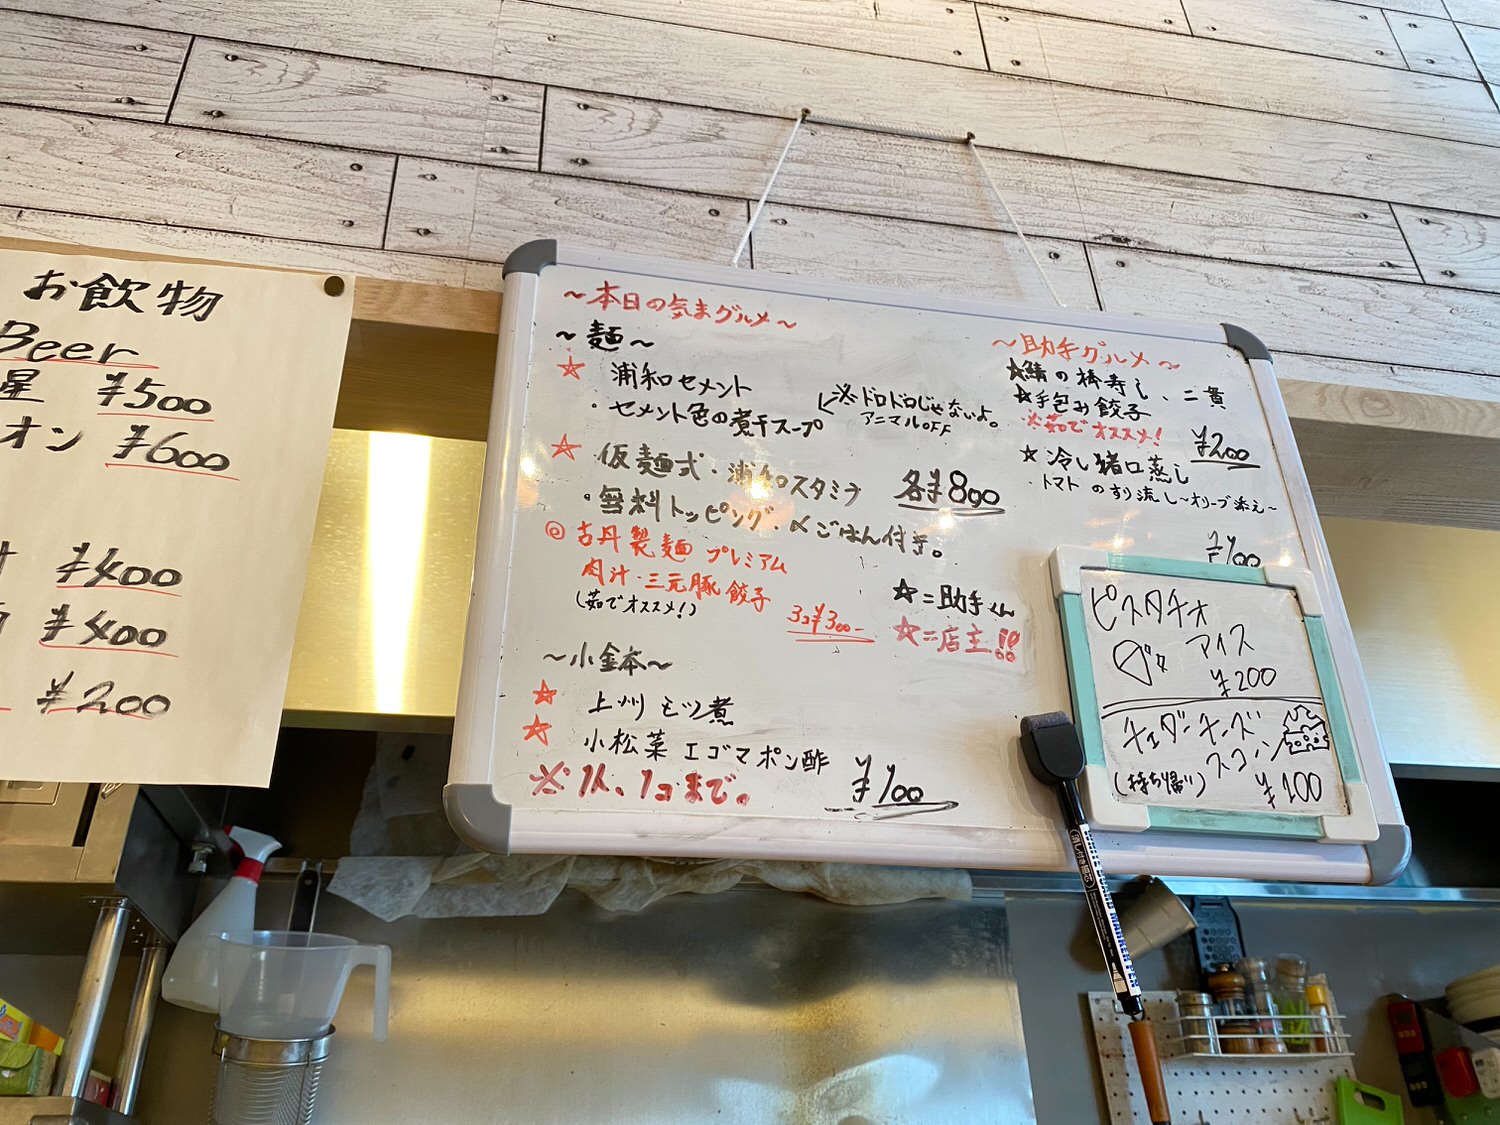 お飲物
Beer
星 ¥500
オン ¥600
¥400
¥400
¥200
～本日の気まグルメ～
～麺～
☆ 浦和セメント
・セメント色の煮干スープ
※ドロドロじゃないよ。
アニマルOFF
☆ 仮麺式・浦和スタミナ
各¥800
・無料トッピング・〆ごはん付き。
◎古丹製麺 プレミアム
肉汁・三元豚餃子
(茹でオススメ!)
3コ¥300-
☆=助手くん
☆=店主!!
～小鉢～
☆ 上州モツ煮
☆ 小松菜エゴマポン酢
※1人、1コまで。
¥100
～助手グルメ～
☆鯖の棒寿し、二貫
☆手包み餃子
※茹でオススメ!
¥200
☆冷し猪口蒸し
・トマトのすり流し～オリーブ添え～
¥100
ピスタチオ
アイス
¥200
チェダーチーズ
スコーン
(持ち帰り)
¥100